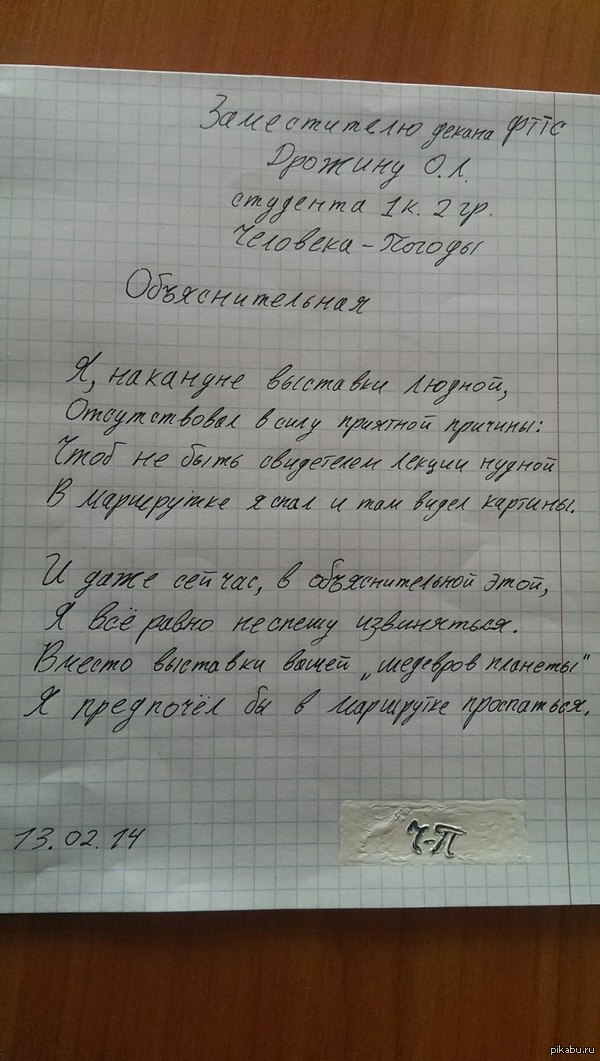 Заместителю декана ФТГС
Дрожину О.Л.
студента 1к. 2гр.
Человека-Погоды
Объяснительная
Я, накандне выставки людной,
Отсутствовал в силу приятной причины:
Чтоб не быть свидетелем лекции нудной
В маршрутке я спал и там видел картины.
И даже сейчас, в объяснительной этой,
Я всё равно неспешу извиняться.
Вместо выставки вашей „шедевров планеты"
Я предпочёл бы в маршрутке проспаться.
13.02.14
Ч-П
pikabu.ru